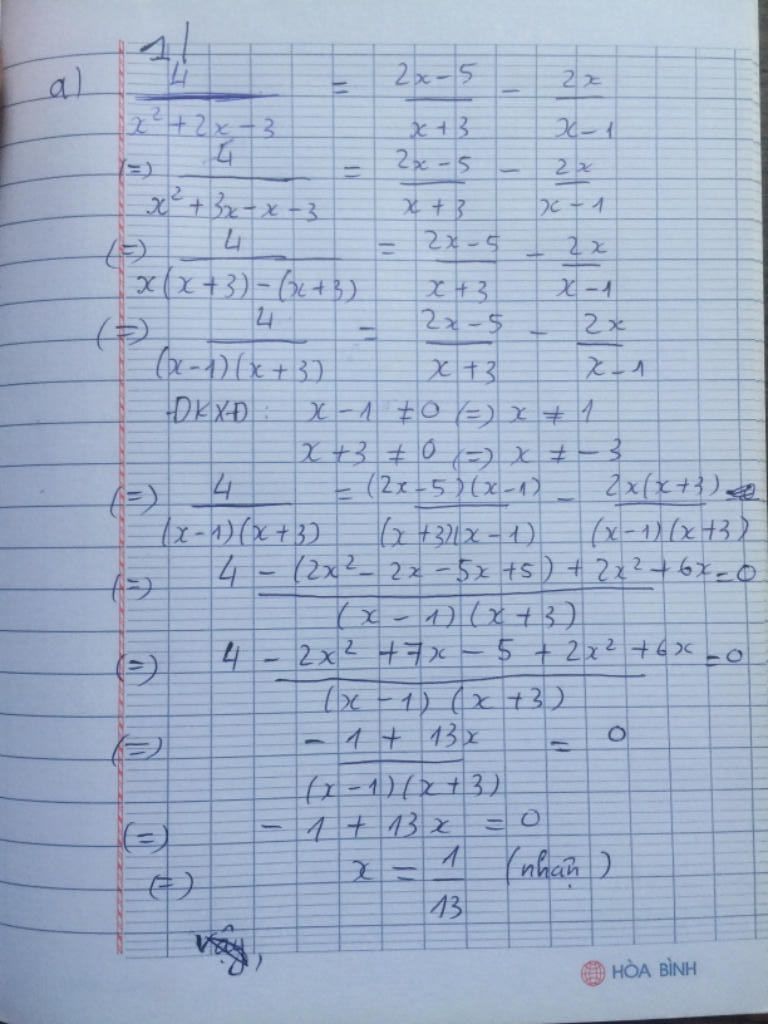 1/
a) 4/(x² + 2x - 3) = (2x - 5)/(x + 3) - 2x/(x - 1)
(=) 4/(x² + 3x - x - 3) = (2x - 5)/(x + 3) - 2x/(x - 1)
(=) 4/(x(x + 3) - (x + 3)) = (2x - 5)/(x + 3) - 2x/(x - 1)
(=) 4/((x - 1)(x + 3)) = (2x - 5)/(x + 3) - 2x/(x - 1)
ĐKXĐ: x - 1 ≠ 0 (=) x ≠ 1
x + 3 ≠ 0 (=) x ≠ -3
(=) 4/((x - 1)(x + 3)) = (2x - 5)(x - 1)/((x + 3)(x - 1)) - 2x(x + 3)/((x - 1)(x + 3))
(=) (4 - (2x² - 2x - 5x + 5) + 2x² + 6x)/((x - 1)(x + 3)) = 0
(=) (4 - 2x² + 7x - 5 + 2x² + 6x)/((x - 1)(x + 3)) = 0
(=) (-1 + 13x)/((x - 1)(x + 3)) = 0
(=) -1 + 13x = 0
(=) x = 1/13 (nhận)
HÒA BÌNH